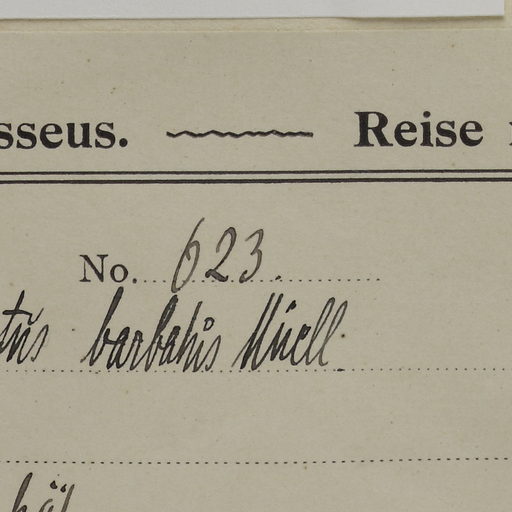 sseus. Reise
No. 623.
barbatus Muell.